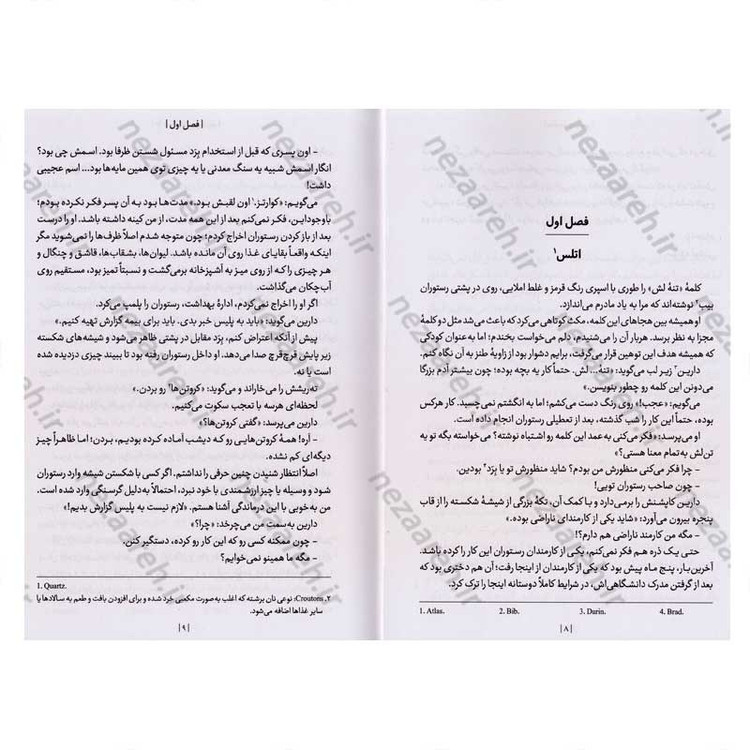 فصل اول
اتلس۱
کلمهٔ «تنه لش» را طوری با اسپری رنگ قرمز و غلط املایی، روی در پشتی رستوران
بیب۲ نوشته‌اند که مرا به یاد مادرم می‌اندازد.
او همیشه بین هجاهای این کلمه، مکث کوتاهی می‌کرد که باعث می‌شد مثل دو کلمهٔ
مجزا به نظر برسد. هربار آن را می‌شنیدم، دلم می‌خواست بخندم؛ اما به‌عنوان کودکی
که همیشه هدف این توهین قرار می‌گرفت، برایم دشوار بود از زاویهٔ طنز به آن نگاه کنم.
دارین۳ زیر لب می‌گوید: «تنه‌ا... لش. حتماً کار یه بچه بوده؛ چون بیشتر آدم بزرگا
می‌دونن این کلمه رو چطور بنویسن.»
می‌گویم: «عجب!» و روی رنگ دست می‌کشم؛ اما به انگشتم نمی‌چسبد. کار هرکس
بوده، حتماً این کار را شب گذشته، بعد از تعطیلی رستوران انجام داده است.
او می‌پرسد: «فکر می‌کنی به عمد این کلمه رو اشتباه نوشته؟ می‌خواسته بگه تو یه
تن‌لش به‌تمام معنا هستی؟»
- چرا فکر می‌کنی منظورش من بودم؟ شاید منظورش تو یا برَد۴ بودین.
- چون صاحب رستوران تویی!
دارین کاپشنش را برمی‌دارد و با کمک آن، تکهٔ بزرگی از شیشهٔ شکسته را از قاب
پنجره بیرون می‌آورد: «شاید یکی از کارمندای ناراضی بوده.»
- مگه من کارمند ناراضی هم دارم؟!
حتی یک ذره هم فکر نمی‌کنم، یکی از کارمندان رستوران این کار را کرده باشد.
آخرین‌بار، پنج ماه پیش بود که یکی از کارمندان از اینجا رفت؛ آن هم دختری بود که
بعد از گرفتن مدرک دانشگاهی‌اش، در شرایط کاملاً دوستانه اینجا را ترک کرد.
1. Atlas. 2. Bib. 3. Darin. 4. Brad.
| ۸ |
| فصل اول |
- اون پسری که قبل از استخدام برَد مسئول شستن ظرفا بود. اسمش چی بود؟
انگار اسمش شبیه یه سنگ معدنی یا یه چیزی توی همین مایه‌ها بود... اسم عجیبی
داشت!
می‌گویم: «کوارتز.۱ اون لقبش بود.» مدت‌ها بود به آن پسر فکر نکرده بودم؛
باوجوداین، فکر نمی‌کنم بعد از این همه مدت، از من کینه داشته باشد. او را درست
بعد از باز کردن رستوران اخراج کردم؛ چون متوجه شدم اصلاً ظرف‌ها را نمی‌شوید مگر
اینکه واقعاً بقایای غذا روی آن مانده باشد. لیوان‌ها، بشقاب‌ها، قاشق و چنگال و
هر چیزی را که از روی میز به آشپزخانه برمی‌گشت و نسبتاً تمیز بود، مستقیم روی
آب‌چکان می‌گذاشت.
اگر او را اخراج نمی‌کردم، ادارهٔ بهداشت، رستوران را پلمپ می‌کرد.
دارین می‌گوید: «باید به پلیس خبر بدی. باید برای بیمه گزارش تهیه کنیم.»
پیش از آنکه اعتراض کنم، برَد مقابل در پشتی ظاهر می‌شود و شیشه‌های شکسته
زیر پایش قرچ‌قرچ صدا می‌دهد. او داخل رستوران رفته بود تا ببیند چیزی دزدیده شده
است یا نه.
ته‌ریشش را می‌خاراند و می‌گوید: «کروتن‌ها۲ رو بردن.»
لحظه‌ای هرسه با تعجب سکوت می‌کنیم.
دارین می‌پرسد: «گفتی کروتن‌ها؟»
- آره! همهٔ کروتن‌هایی رو که دیشب آماده کرده بودیم، بردن؛ اما ظاهراً چیز
دیگه‌ای کم نشده.
اصلاً انتظار شنیدن چنین حرفی را نداشتم. اگر کسی با شکستن شیشه وارد رستوران
شود و وسیله یا چیز ارزشمندی با خود نبرد، احتمالاً به‌دلیل گرسنگی وارد شده است.
من به خوبی با این درماندگی آشنا هستم. «لازم نیست به پلیس گزارش بدیم!»
دارین به‌سمت من می‌چرخد: «چرا؟»
- چون ممکنه کسی رو که این کار رو کرده، دستگیر کنن.
- مگه ما همینو نمی‌خوایم؟
1. Quartz.
۲. Croutons: نوعی نان برشته که اغلب به‌صورت مکعبی خرد شده و برای افزودن بافت و طعم به سالادها یا
سایر غذاها اضافه می‌شود.
| ۹ |
nezaareh.ir
nezaareh.ir
nezaareh.ir
nezaareh.ir
nezaareh.ir
nezaareh.ir